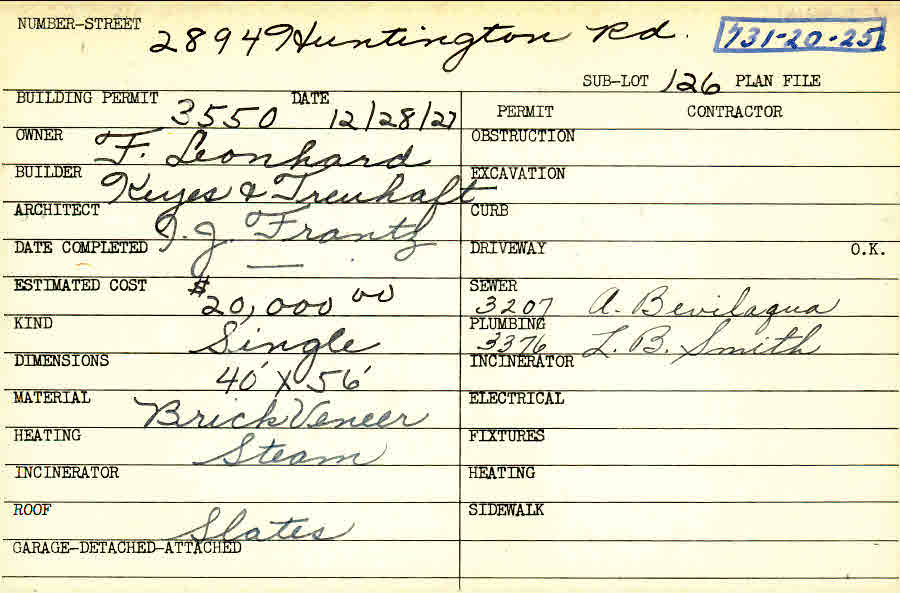 NUMBER-STREET 28949 Huntington Rd. 731-20-25
SUB-LOT 126 PLAN FILE
BUILDING PERMIT 3550 DATE 12/28/27
PERMIT CONTRACTOR
OWNER F. Leonhard
OBSTRUCTION
BUILDER Keyes & Treuhaft
EXCAVATION
ARCHITECT I. J. Frantz
CURB
DATE COMPLETED —
DRIVEWAY O.K.
ESTIMATED COST $20,000 00
SEWER 3207 A. Bevilaqua
KIND Single
PLUMBING 3376 L. B. Smith
DIMENSIONS 40' X 56'
INCINERATOR
MATERIAL Brick Veneer
ELECTRICAL
HEATING Steam
FIXTURES
INCINERATOR
HEATING
ROOF Slates
SIDEWALK
GARAGE-DETACHED-ATTACHED